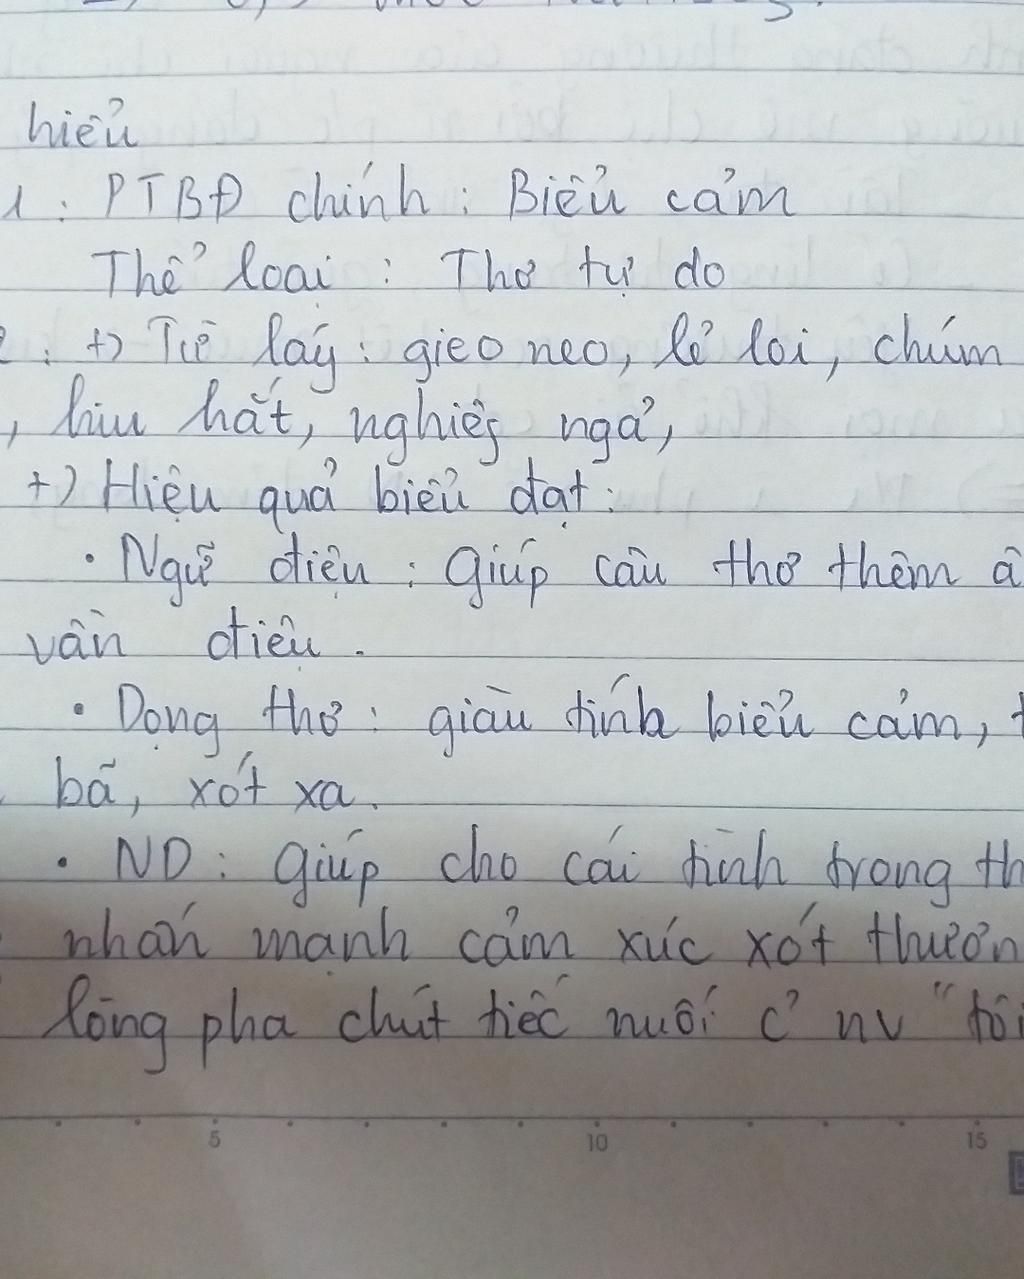 hiểu
1 : PTBĐ chính : Biểu cảm
Thể loại : Thơ tự do
: +) Từ láy : gieo neo, lẻ loi, chúm
, hiu hắt, nghiêng ngả,
+) Hiệu quả biểu đạt :
• Ngữ điệu : Giúp câu thơ thêm â
vần điệu .
• Dọng thơ : giàu tính biểu cảm, t
bã, xót xa.
• ND : Giúp cho cái tình trong th
nhấn mạnh cảm xúc xót thươn
lòng pha chút tiếc nuối c' nv "tôi
5 10 15